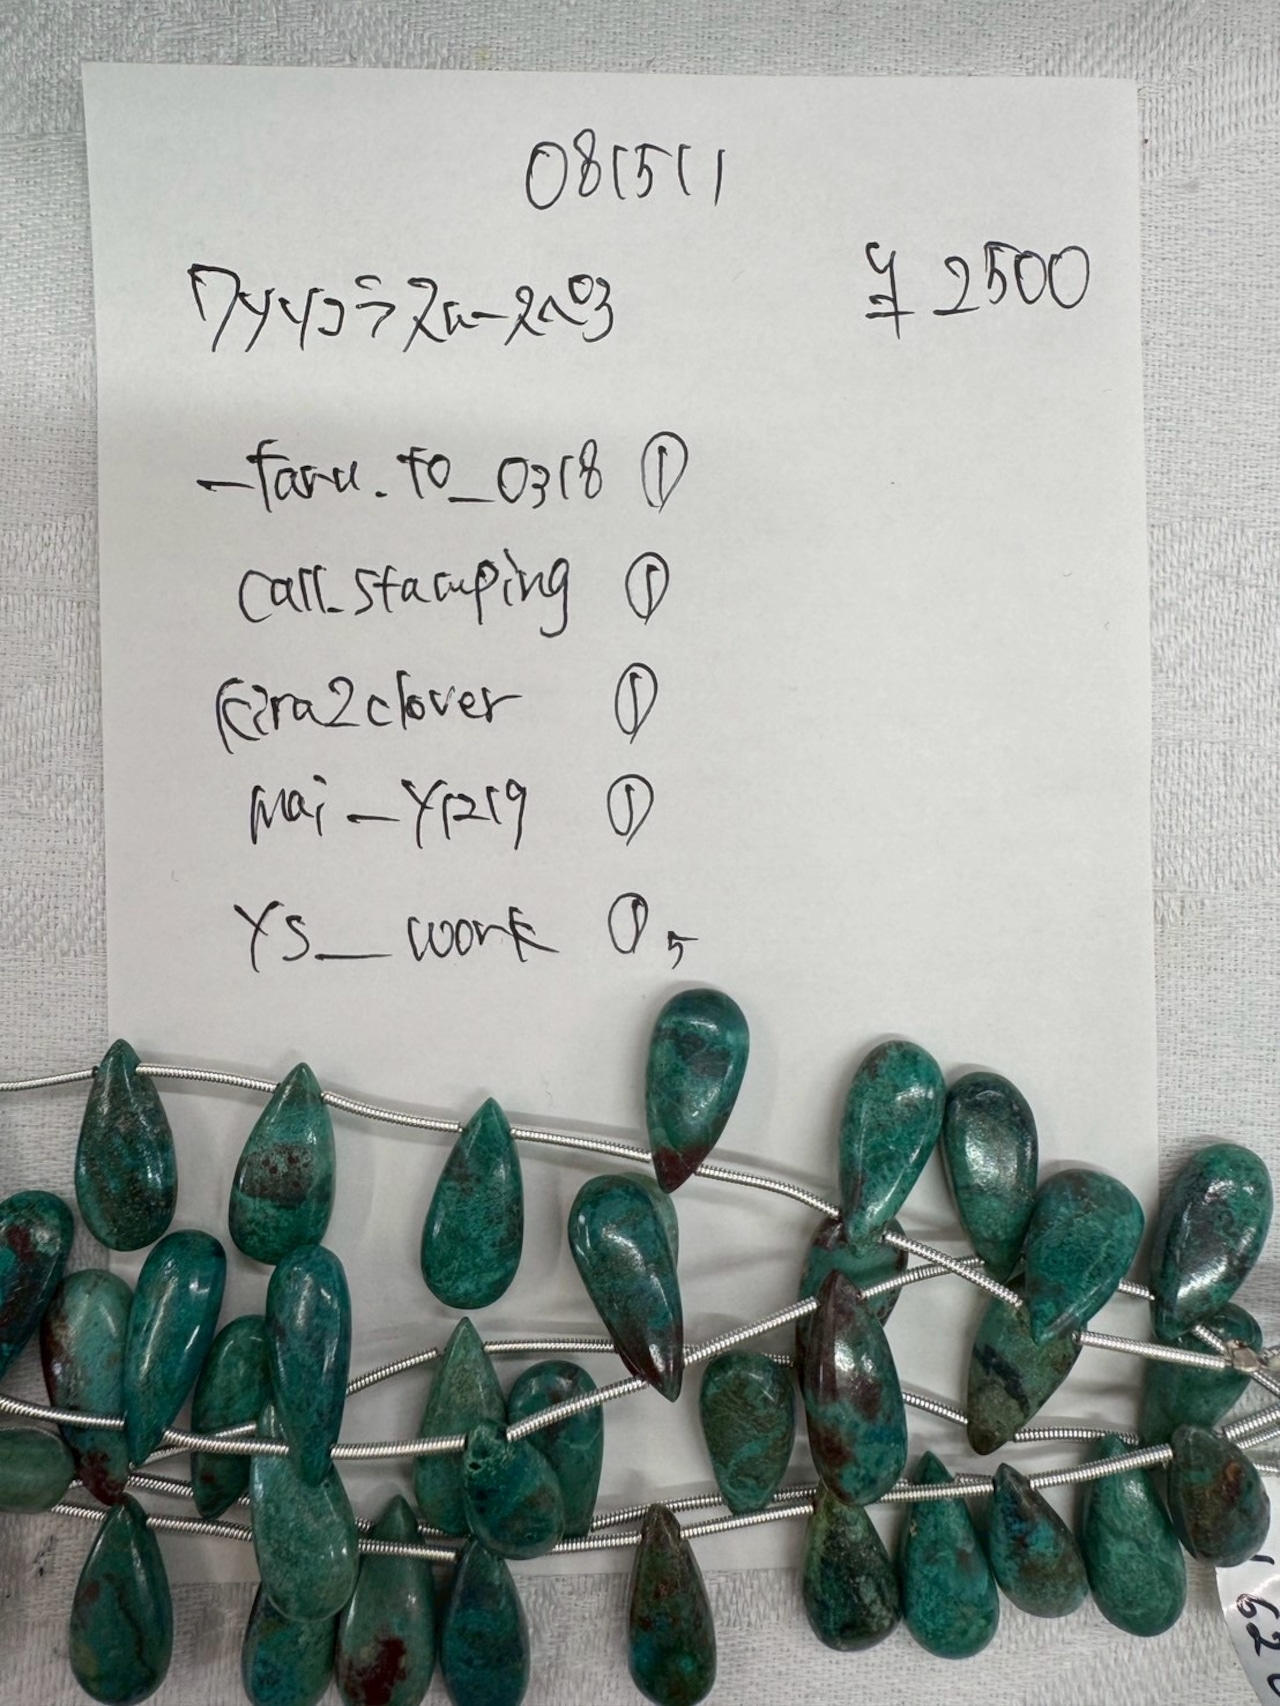 081511
クリソコラスムースペアー
¥2500
-taru.to_0318 ①
call_stamping ①
kira2clover ①
mai_y1219 ①
ys__work ①,5
620